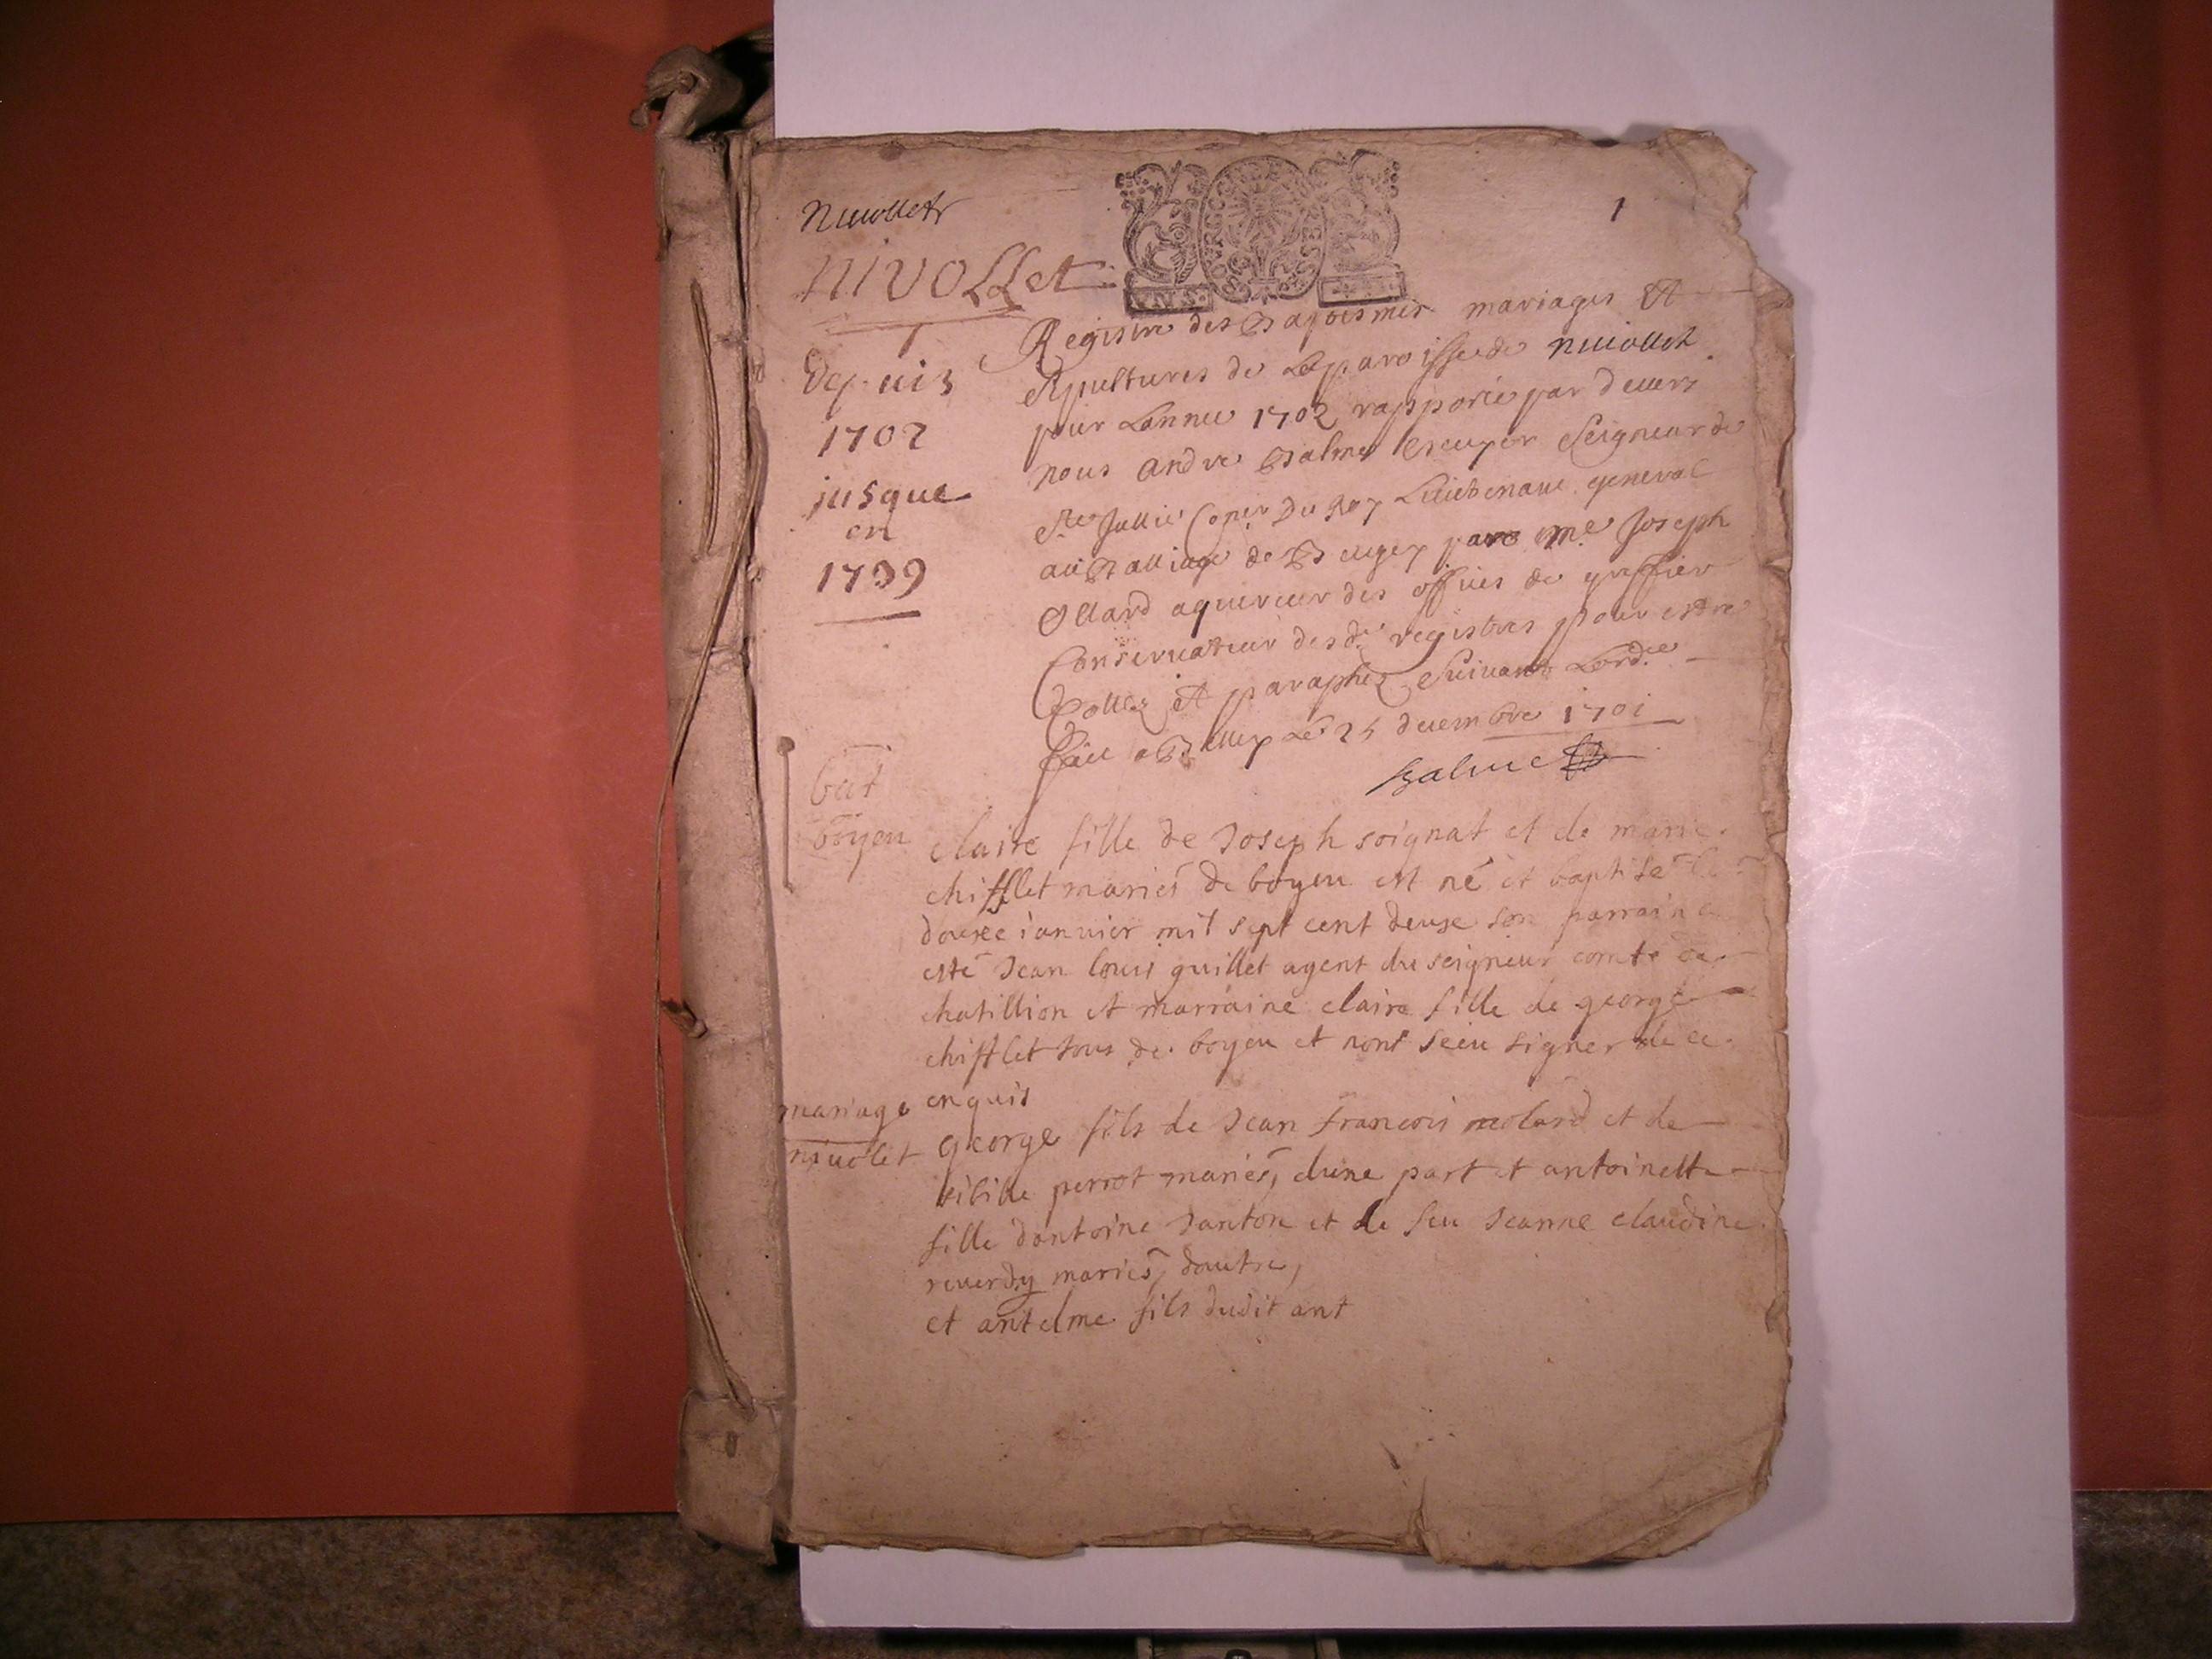 Nivollet
1
NIVOLLet
depuis
1702
jusque
en
1739
Registre des Baptesmes mariages Et
Sepultures de La parroisse de Nivollet
pour Lannee 1702 rapporté par devers
nous andre Balme Escuyer Seigneur de
Ste Jullie Coner Du Roy Lieutenant general
au Balliage de Beugey par me Joseph
Ollard aquereur des offices de greffier
Conservateur des dts registres pour estre
Cottez Et paraphez Suivant Lordce
Fait a Belley Le 25 decembre 1701
Balme
bat
boyeu
claire fille de Joseph soignat et de marie
chifflet mariés de boyeu est né et baptisé le
douzee ianvier mil sept cent deuse son parrain a
esté Jean louis guillet agent du seigneur comte de
chatillion et marraine claire fille de george
chifflet tous de boyeu et nont sceu signer de ce
enquis
mariage
nivolet
george fils de Jean francois molard et de
sibille perrot mariés, dune part et antoinette
fille dantoine Janton et de feu Jeanne claudine
reverdy mariés, dautre,
et antelme fils dudit ant